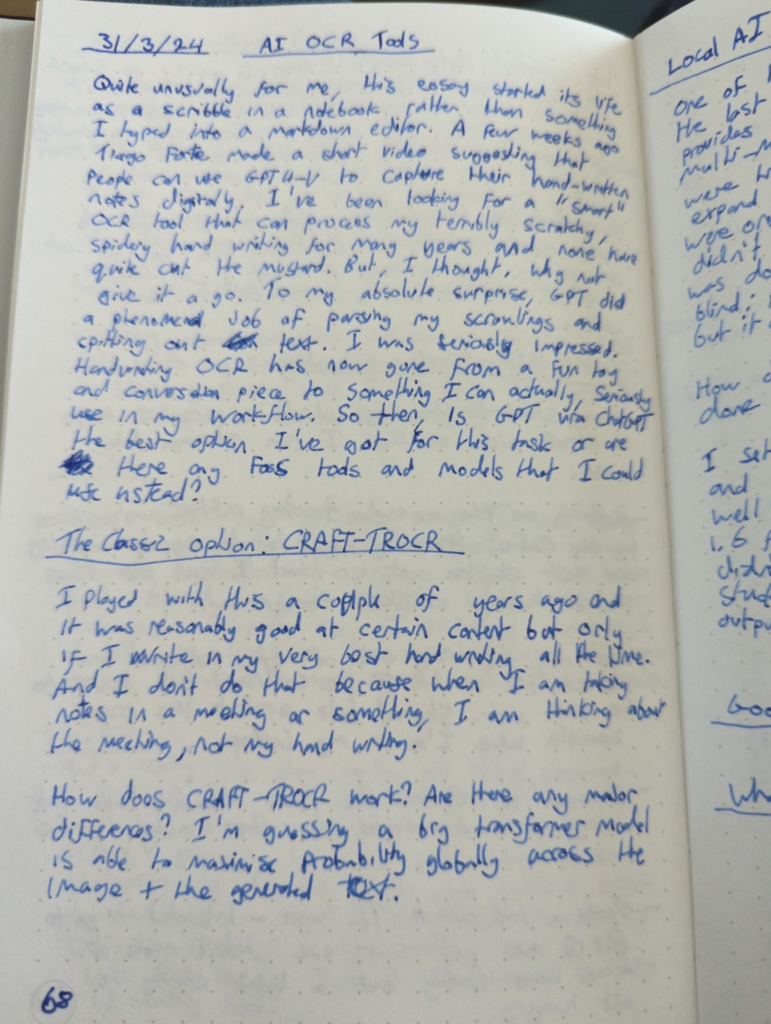 31/3/24 AI OCR Tools
Quite unusually for me, this essay started its life
as a scribble in a notebook rather than something
I typed into a markdown editor. A few weeks ago
Tiago Forte made a short video suggesting that
people can use GPT4-V to capture their hand-written
notes digitally. I've been looking for a "smart"
OCR tool that can process my terribly scratchy,
spidery hand writing for many years and none have
quite cut the mustard. But, I thought, why not
give it a go. To my absolute surprise, GPT did
a phenomenal job of parsing my scrawlings and
spitting out text. I was seriously impressed.
Handwriting OCR has now gone from a fun toy
and conversation piece to something I can actually, seriously
use in my workflow. So then, is GPT via ChatGPT
the best option I've got for this task or are
there any FOSS tools and models that I could
use instead?
The Classic option: CRAFT-TROCR
I played with this a couple of years ago and
it was reasonably good at certain content but only
if I write in my very best hand writing all the time.
And I don't do that because when I am taking
notes in a meeting or something, I am thinking about
the meeting, not my hand writing.
How does CRAFT-TROCR work? Are there any major
differences? I'm guessing a big transformer model
is able to maximise probability globally across the
image + the generated text.
68
Local AI
one of
the last
provides
multi-m
were
expand
were
didn't
was do
blind:
but it
How
done
I set
and
well
1.6
didn
outpu
Goo
Wha